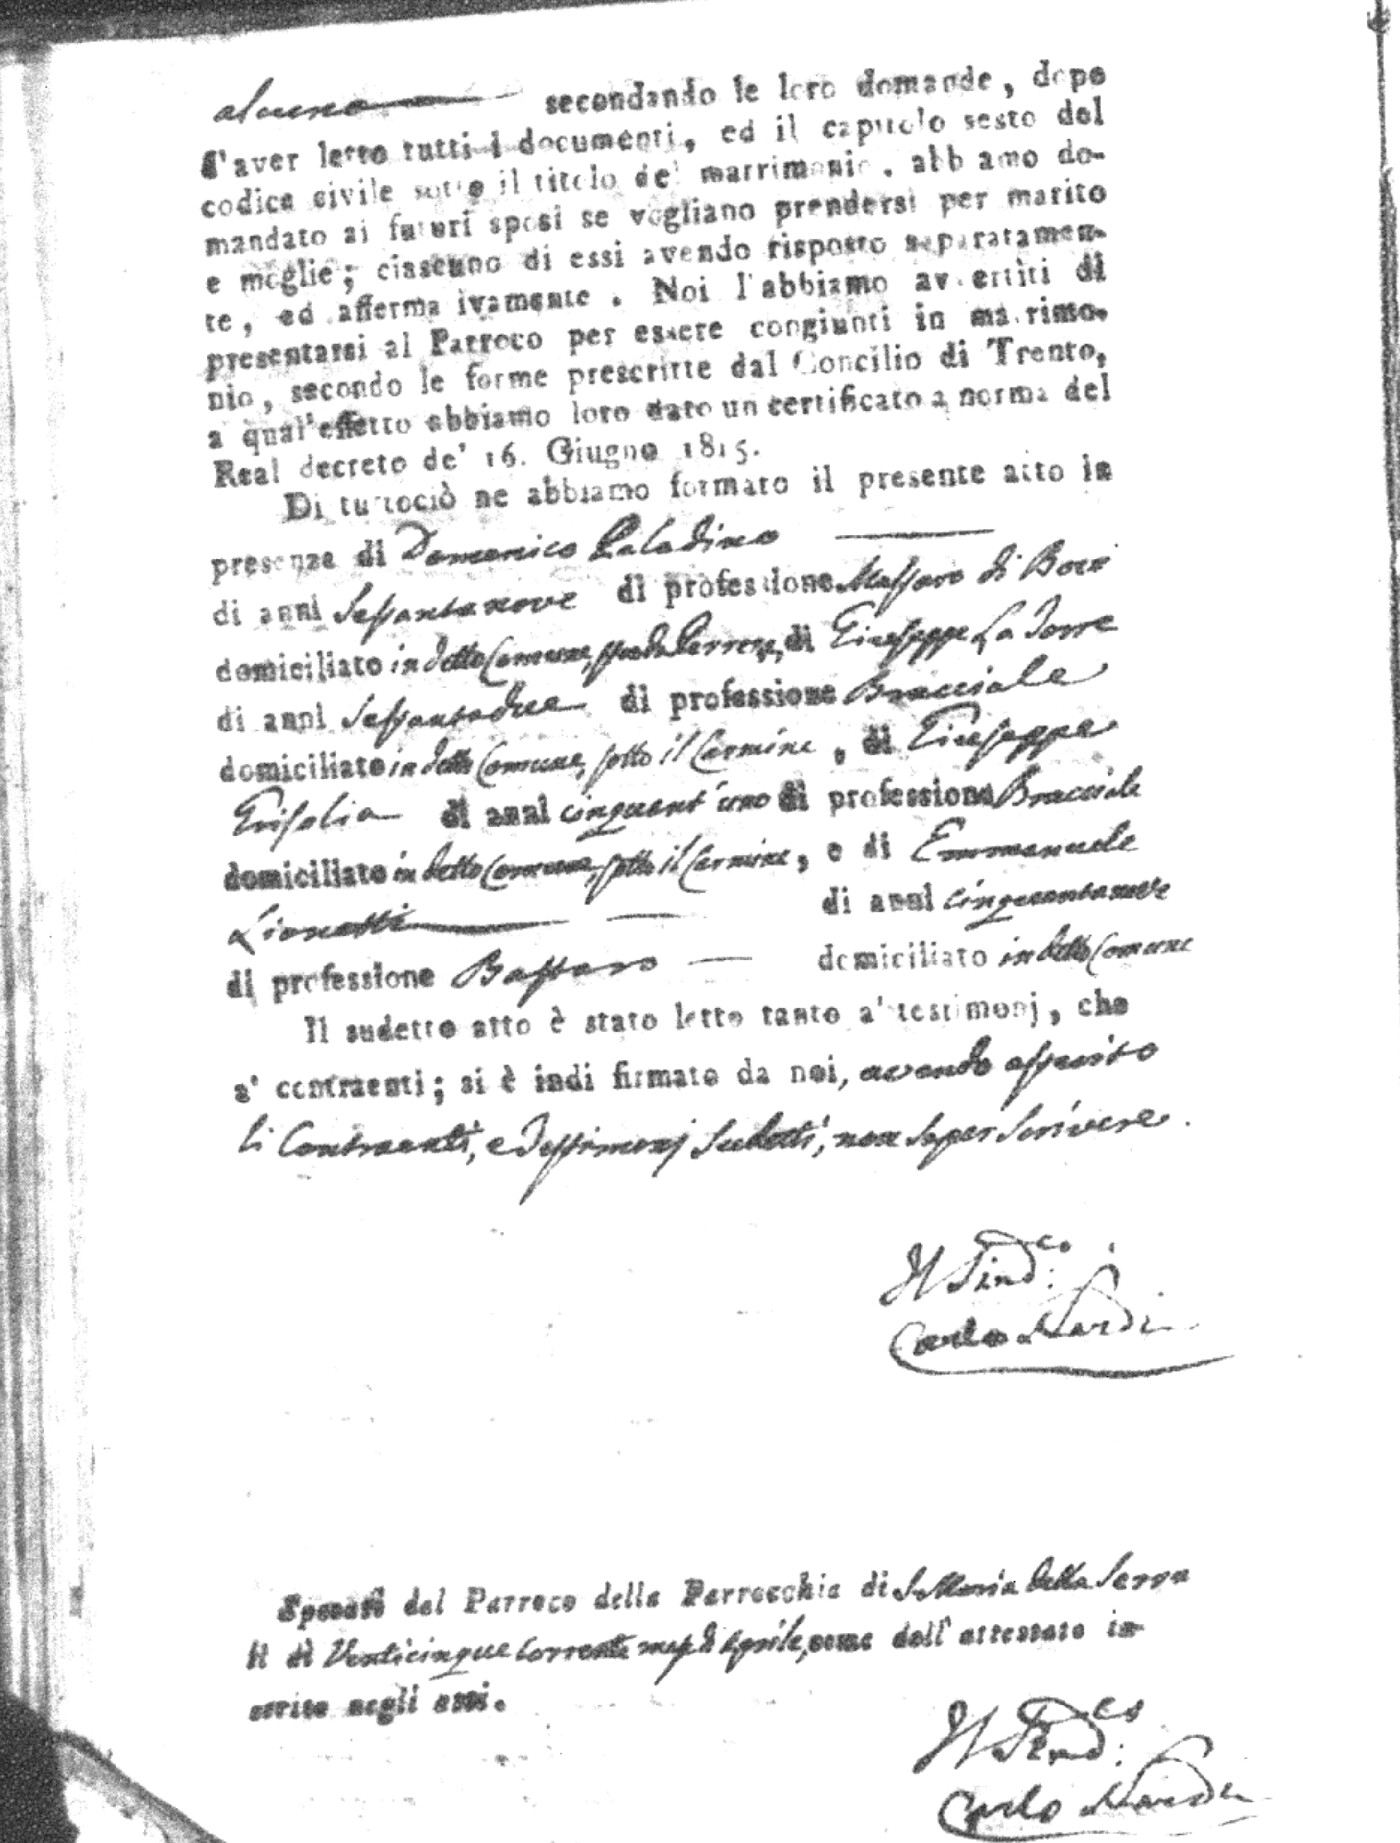 alcuno secondando le loro domande, dopo
d'aver letto tutti i documenti, ed il capitolo sesto del
codice civile sotto il titolo del matrimonio. abbiamo do-
mandato ai futuri sposi se vogliano prendersi per marito
e moglie; ciascuno di essi avendo risposto separatamen-
te, ed affermativamente. Noi l'abbiamo avvertiti di
presentarsi al Parroco per essere congiunti in matrimo-
nio, secondo le forme prescritte dal Concilio di Trento,
a qual'effetto abbiamo loro dato un certificato a norma del
Real decreto de' 16. Giugno 1815.
Di tuttociò ne abbiamo formato il presente atto in
presenza di Domenico Paladino
di anni Sessantanove di professione Massaro di Bovi
domiciliato in detto Comune, di Giuseppe La Torre
di anni Sessantadue di professione Bracciale
domiciliato in detto Comune, sotto il Carmine, di Giuseppe
Grisolia di anni cinquant'uno di professione Bracciale
domiciliato in detto Comune, sotto il Carmine, e di Emmanuele
Lionetti di anni cinquantanove
di professione Bastaro domiciliato in detto Comune
Il sudetto atto è stato letto tanto a' testimonj, che
a' contraenti; si è indi firmato da noi, avendo asserito
li Contraenti, e Testimonj sudetti, non saper scrivere.
Il Sind:co
Carlo Nardi
Sposati dal Parroco della Parrocchia di S. Maria della Serra
li dì Venticinque corrente mese di Aprile, come dall'attestato in-
serito negli atti.
Il Sind:co
Carlo Nardi